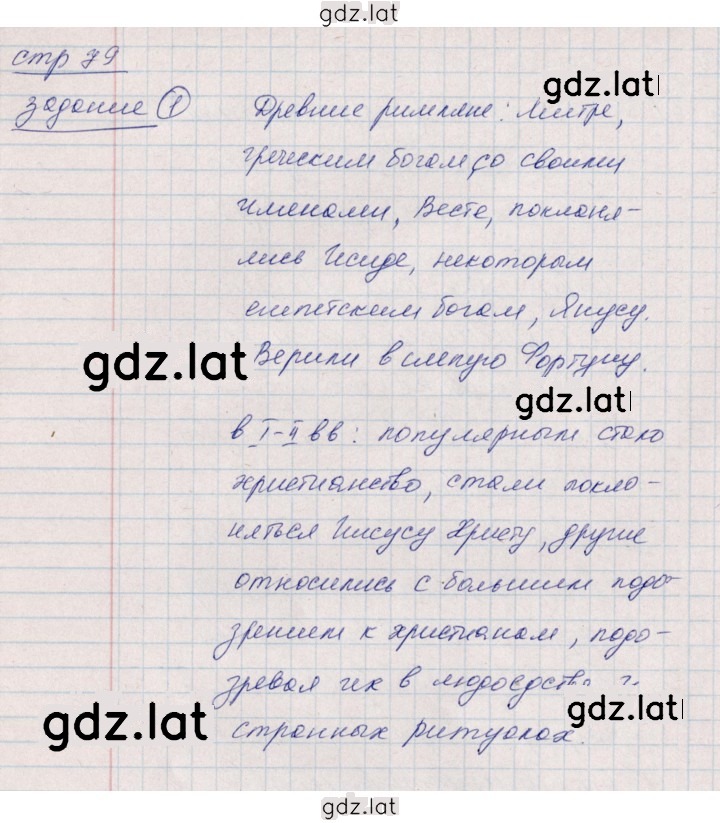 gdz.lat
стр 79
gdz.lat
задание 1
Древние римляне: Митре,
греческим богам со своими
именами, Весте, покланя-
лись Исиде, некоторым
египетским богам, Янусу.
gdz.lat
Верили в слепую Фортуну.
gdz.lat
в I-II вв: популярным стало
христианство, стали покло-
няться Иисусу Христу, другие
относились с большим подо-
зрением к христианам, подо-
зревая их в людоедстве и
gdz.lat
gdz.lat
странных ритуалах.
gdz.lat